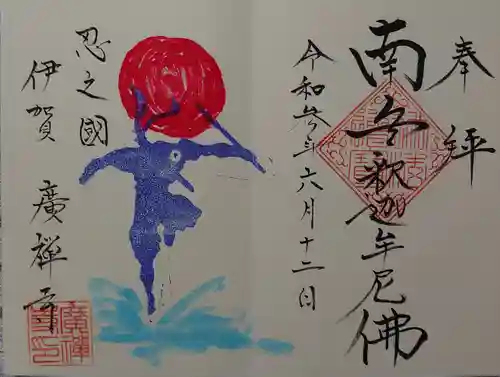 奉拝
南無釈迦牟尼佛
令和参年六月十二日
忍之國
伊賀 廣禅寺